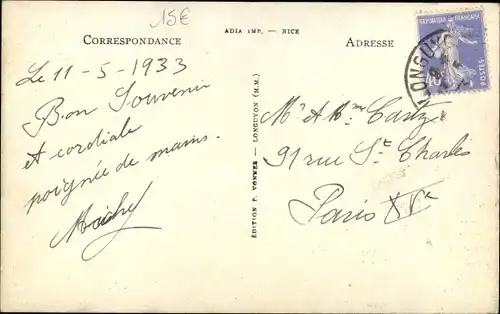 15€
ADIA IMP. — NICE
CORRESPONDANCE
ADRESSE
RÉPUBLIQUE FRANÇAISE
POSTES
LONGUYO
Le 11-5-1933
Bon Souvenir
et cordiale
poignée de mains.
ÉDITION F. VONNER — LONGUYON (M.M.)
Mr & Mme
91 rue St Charles
Paris XVe